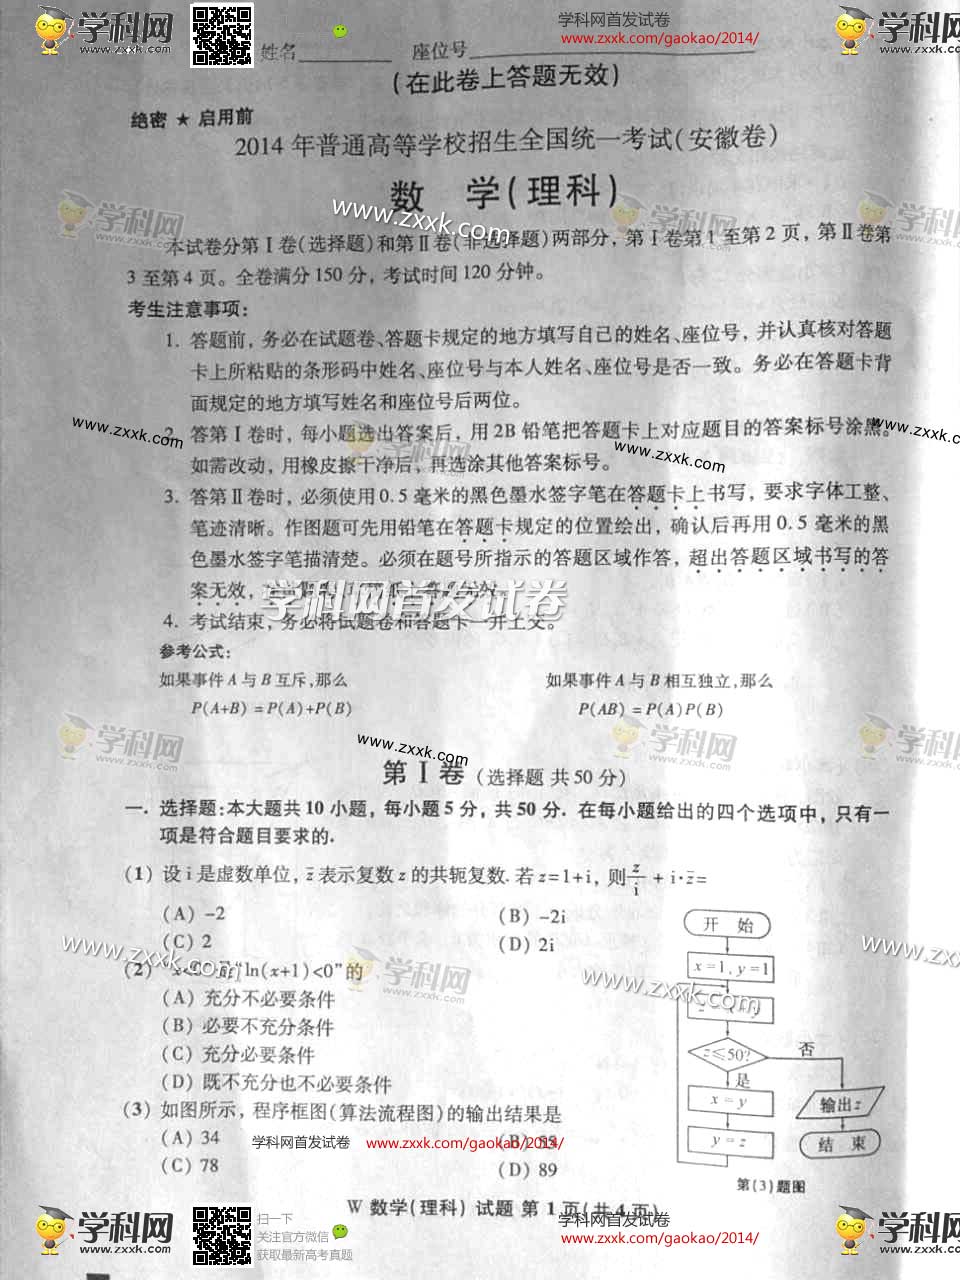 学科网 www.zxxk.com
学科网首发试卷
www.zxxk.com/gaokao/2014/
姓名 座位号
(在此卷上答题无效)
绝密 ★ 启用前
2014 年普通高等学校招生全国统一考试(安徽卷)
数 学(理科)
www.zxxk.com
本试卷分第Ⅰ卷(选择题)和第Ⅱ卷(非选择题)两部分，第Ⅰ卷第 1 至第 2 页，第Ⅱ卷第
3 至第 4 页。全卷满分 150 分，考试时间 120 分钟。
考生注意事项：
1. 答题前，务必在试题卷、答题卡规定的地方填写自己的姓名、座位号，并认真核对答题
卡上所粘贴的条形码中姓名、座位号与本人姓名、座位号是否一致。务必在答题卡背
面规定的地方填写姓名和座位号后两位。
2. 答第Ⅰ卷时，每小题选出答案后，用 2B 铅笔把答题卡上对应题目的答案标号涂黑。
如需改动，用橡皮擦干净后，再选涂其他答案标号。
3. 答第Ⅱ卷时，必须使用 0.5 毫米的黑色墨水签字笔在答题卡上书写，要求字体工整、
笔迹清晰。作图题可先用铅笔在答题卡规定的位置绘出，确认后再用 0.5 毫米的黑
色墨水签字笔描清楚。必须在题号所指示的答题区域作答，超出答题区域书写的答
案无效，
学科网首发试卷
4. 考试结束，务必将试题卷和答题卡一并上交。
参考公式：
如果事件 A 与 B 互斥,那么 如果事件 A 与 B 相互独立,那么
P(A+B) =P(A)+P(B) P(AB) =P(A)P(B)
第Ⅰ卷 (选择题 共 50 分)
一. 选择题：本大题共 10 小题，每小题 5 分，共 50 分. 在每小题给出的四个选项中，只有一
项是符合题目要求的.
(1) 设 i 是虚数单位，z̄ 表示复数 z 的共轭复数. 若 z=1+i，则 z/i + i·z̄=
(A) -2 (B) -2i
(C) 2 (D) 2i
(2) “ln(x+1)<0”的
(A) 充分不必要条件
(B) 必要不充分条件
(C) 充分必要条件
(D) 既不充分也不必要条件
(3) 如图所示，程序框图(算法流程图)的输出结果是
(A) 34 (B)
(C) 78 (D) 89
开 始
x=1, y=1
z≤50?
否
是
x=y
y=z
输出 z
结 束
第(3)题图
学科网首发试卷 www.zxxk.com/gaokao/2014/
W 数学(理科) 试题 第 1 页(共 4 页)
扫一下
关注官方微信
获取最新高考真题
学科网首发试卷
www.zxxk.com/gaokao/2014/
学科网 www.zxxk.com